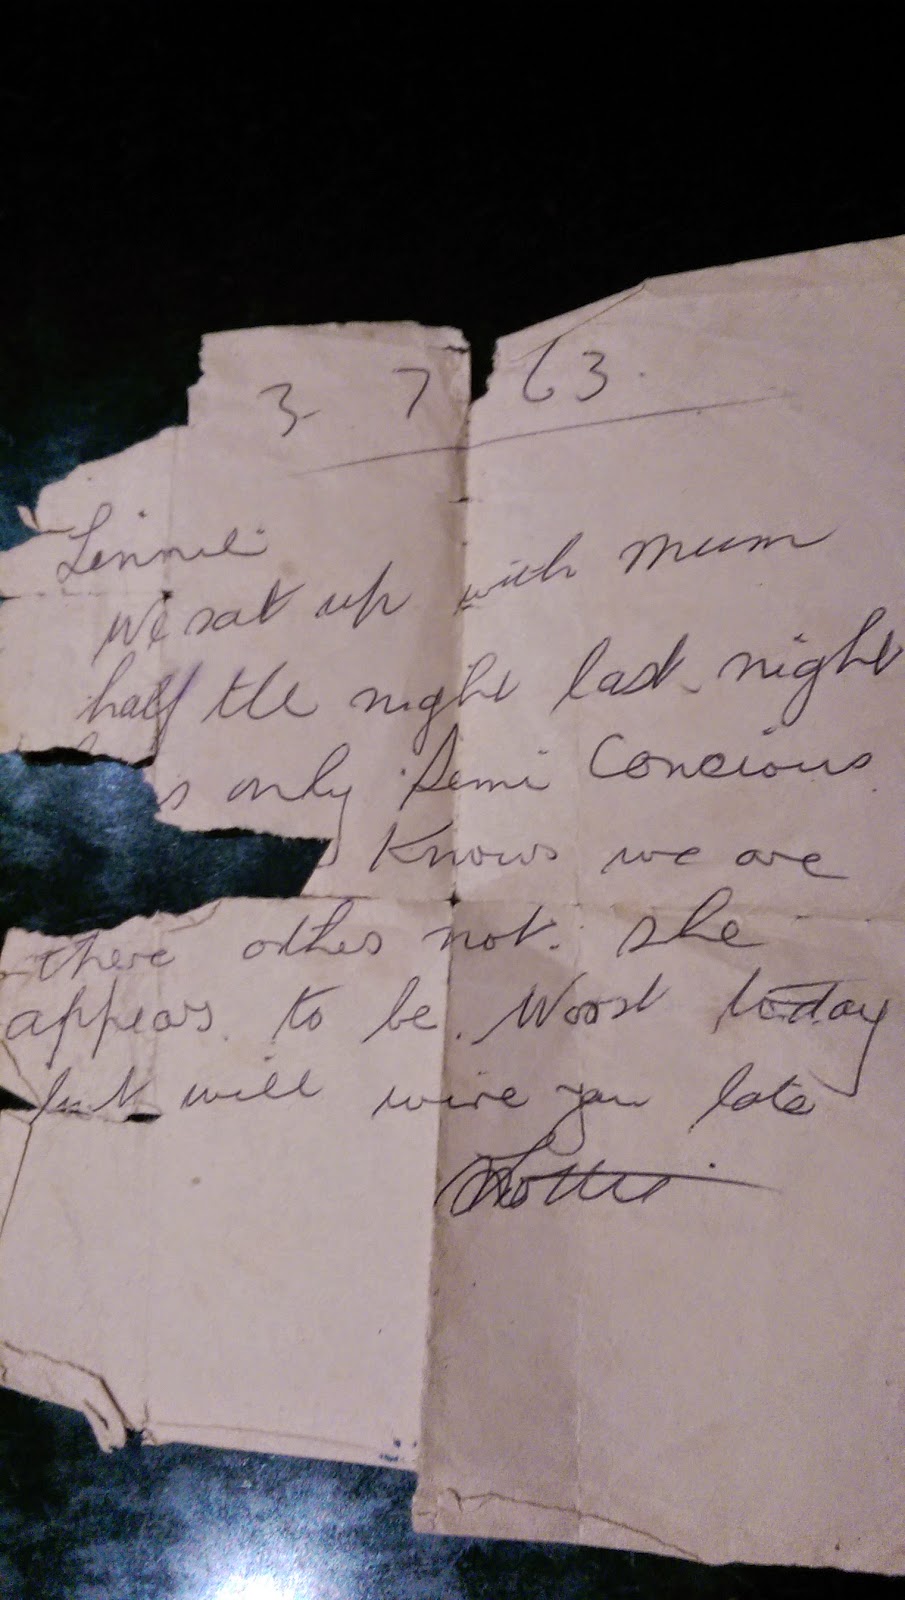 3 7 63.
Linnie
We sat up with Mum
half the night last night
is only Semi Concious
Knows we are
there othes not. she
appears to be. Worst today
but will wire you late